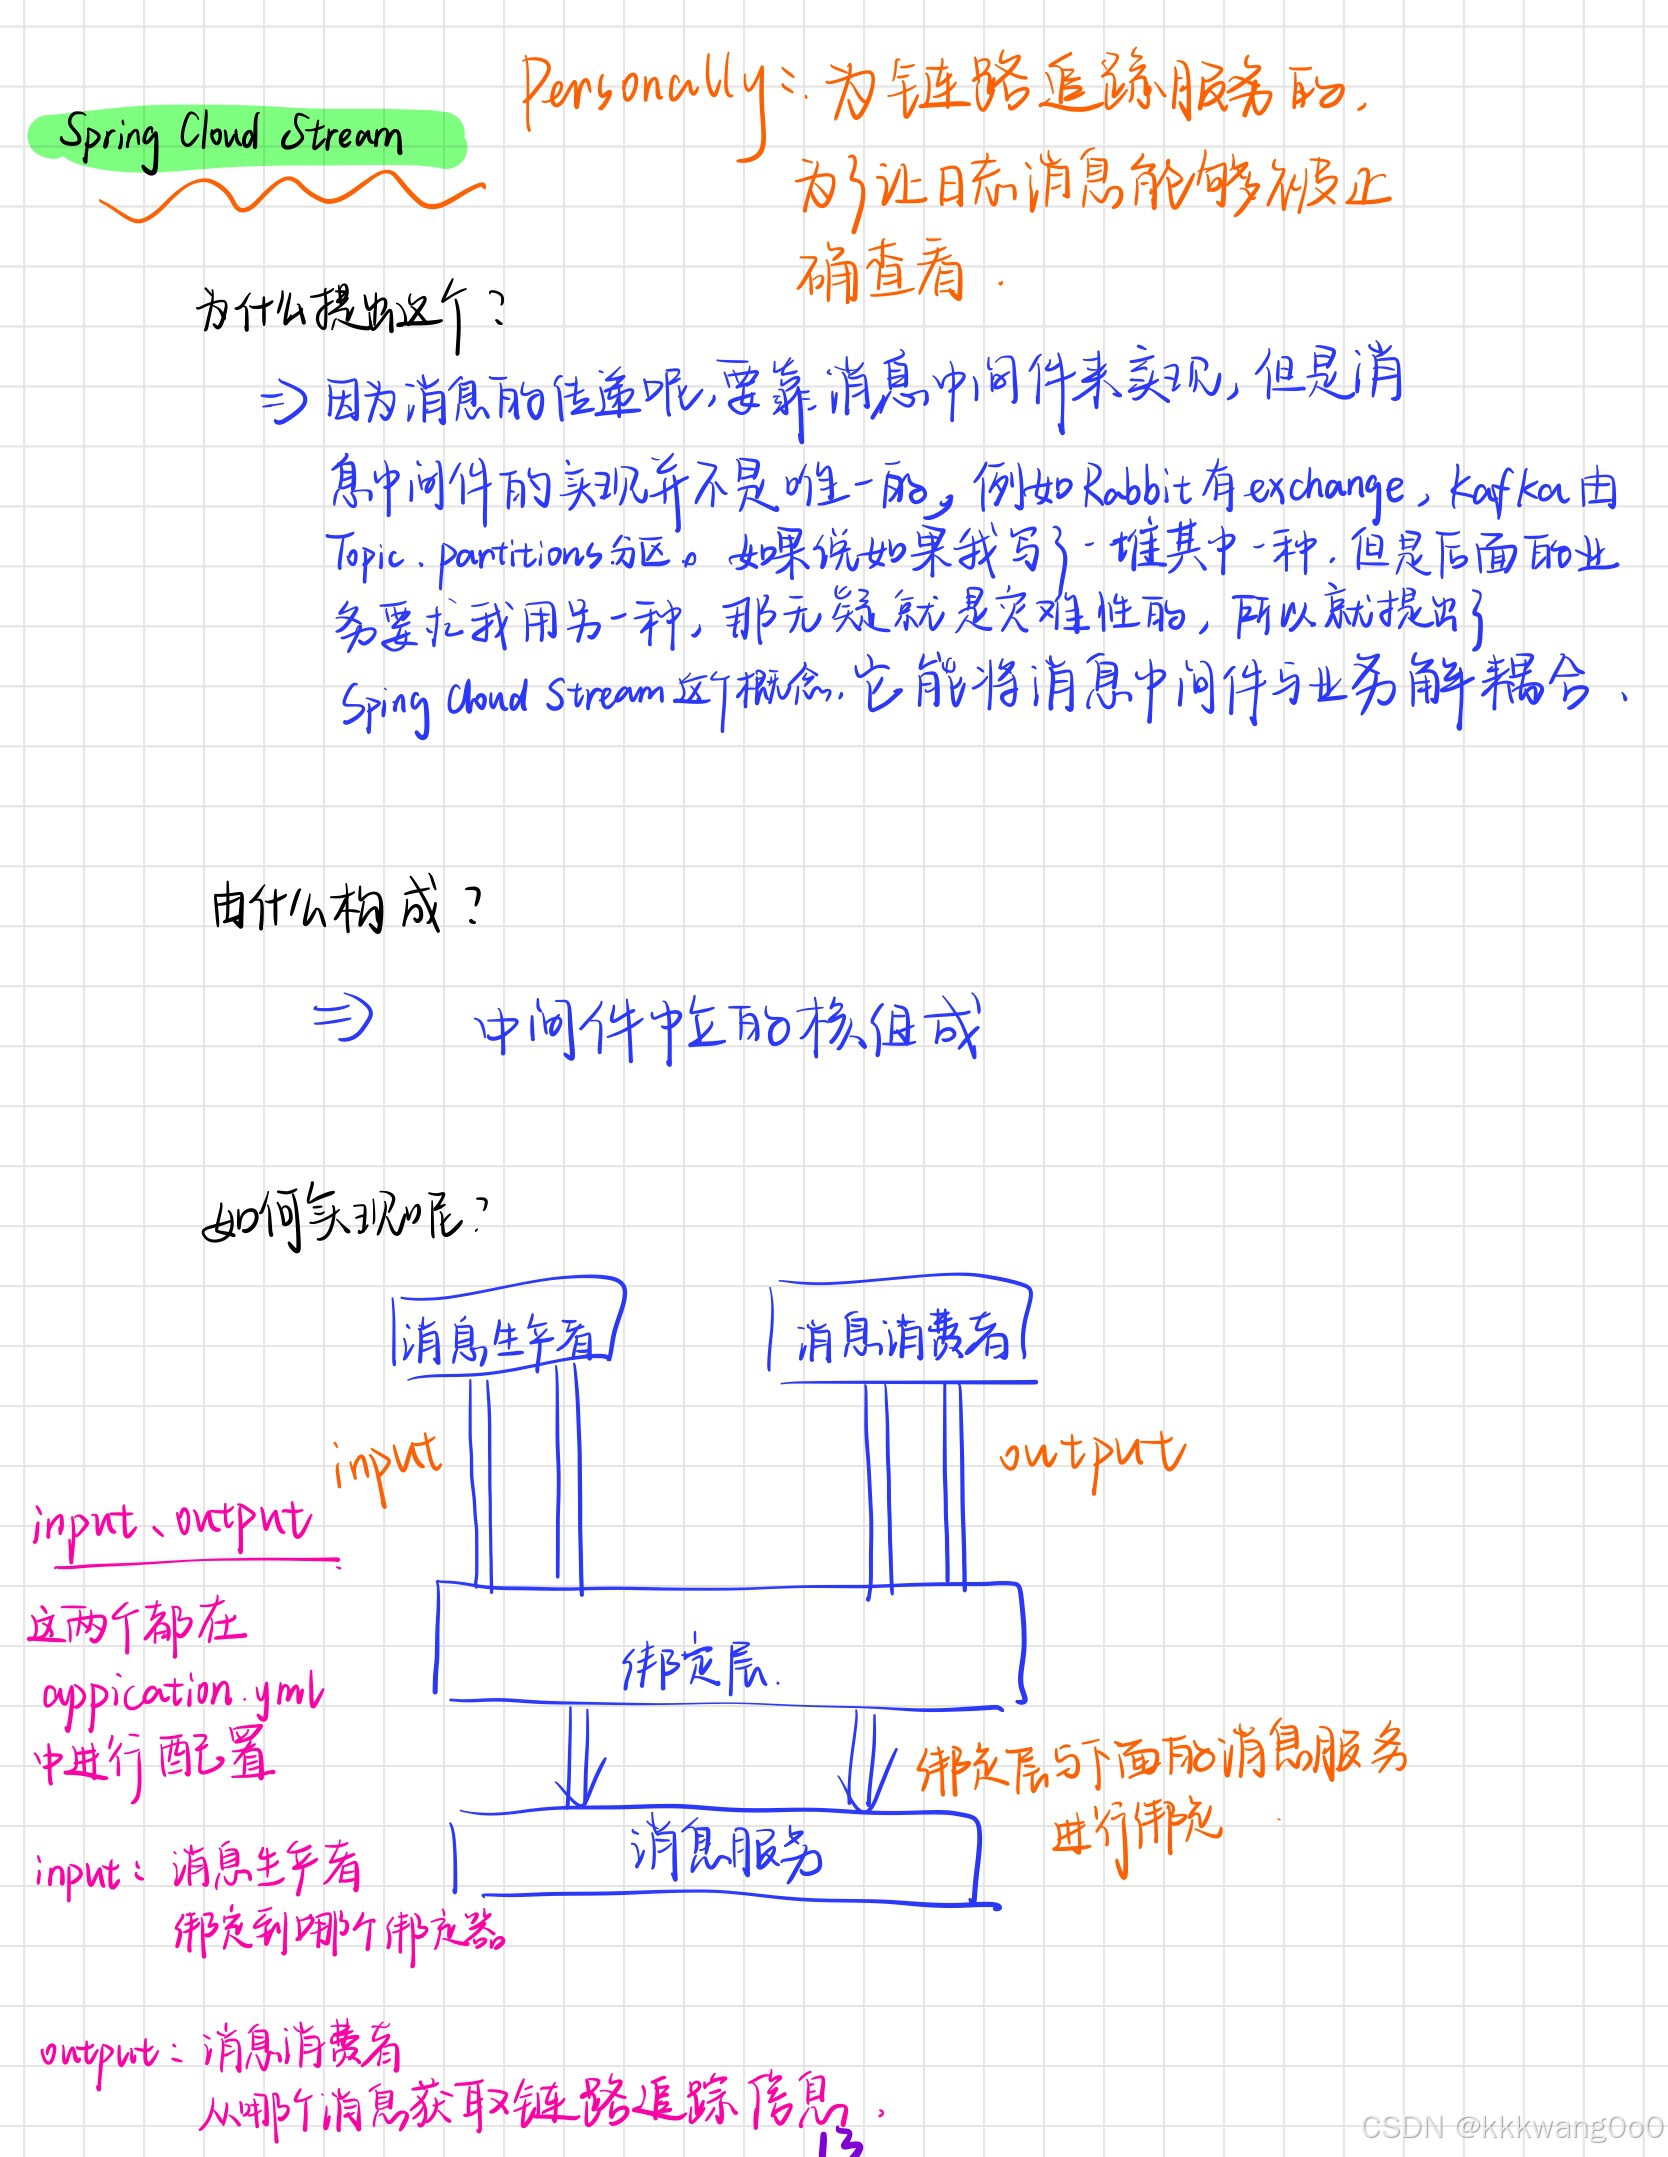 Spring Cloud Stream
Personally: 为链路追踪服务的,
为了让日志消息能够被正
确查看.
为什么提出这个?
=> 因为消息的传递呢,要靠消息中间件来实现,但是消
息中间件的实现并不是唯一的, 例如Rabbit有exchange, kafka由
Topic、partitions分区。如果说如果我写了一堆其中一种.但是后面的业
务要求我用另一种, 那无疑就是灾难性的, 所以就提出了
Sping Cloud Stream这个概念,它能将消息中间件与业务解耦合、
由什么构成?
=> 中间件中立的核组成
如何实现呢?
消息生产者
消息消费者
input
output
input、output
这两个都在
appication.yml
中进行配置
绑定层.
绑定层与下面的消息服务
进行绑定
消息服务
input: 消息生产者
绑定到哪个绑定器
output: 消息消费者
从哪个消息获取链路追踪信息,
13
CSDN @kkkwang0o0